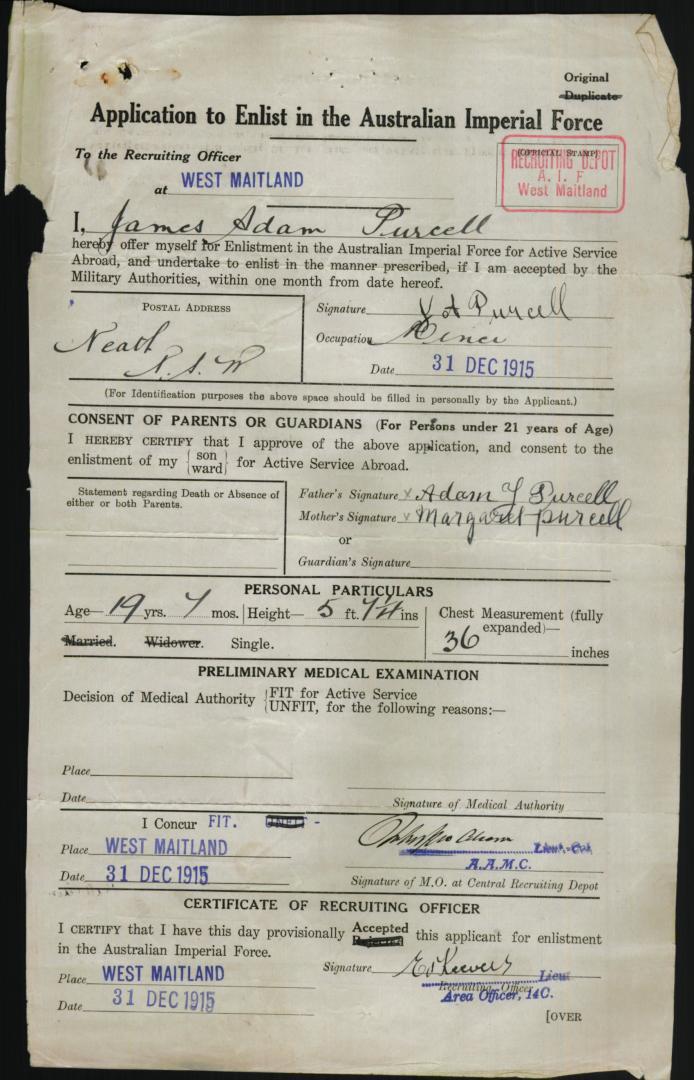 Original
Duplicate
Application to Enlist in the Australian Imperial Force
To the Recruiting Officer
at WEST MAITLAND
(OFFICIAL STAMP)
RECRUITING DEPOT
A. I. F
West Maitland
I, James Adam Purcell
hereby offer myself for Enlistment in the Australian Imperial Force for Active Service
Abroad, and undertake to enlist in the manner prescribed, if I am accepted by the
Military Authorities, within one month from date hereof.
POSTAL ADDRESS
Neath
N. S. W
Signature J A Purcell
Occupation Miner
Date 31 DEC 1915
(For Identification purposes the above space should be filled in personally by the Applicant.)
CONSENT OF PARENTS OR GUARDIANS (For Persons under 21 years of Age)
I HEREBY CERTIFY that I approve of the above application, and consent to the
enlistment of my {son ward} for Active Service Abroad.
Statement regarding Death or Absence of
either or both Parents.
Father's Signature x Adam Y Purcell
Mother's Signature x Margaret purcell
or
Guardian's Signature
PERSONAL PARTICULARS
Age— 19 yrs. 7 mos. Height— 5 ft. 7 1/4 ins
Chest Measurement (fully
expanded)—
36 inches
Married. Widower. Single.
PRELIMINARY MEDICAL EXAMINATION
Decision of Medical Authority {FIT for Active Service
UNFIT, for the following reasons:—
Place
Date
Signature of Medical Authority
I Concur FIT. UNFIT -
Place WEST MAITLAND
Date 31 DEC 1915
Lieut.-Col.
A.A.M.C.
Signature of M.O. at Central Recruiting Depot
CERTIFICATE OF RECRUITING OFFICER
I CERTIFY that I have this day provisionally Accepted Rejected this applicant for enlistment
in the Australian Imperial Force.
Place WEST MAITLAND
Date 31 DEC 1915
Signature Lieut
Recruiting Officer
Area Officer, 14C.
[OVER